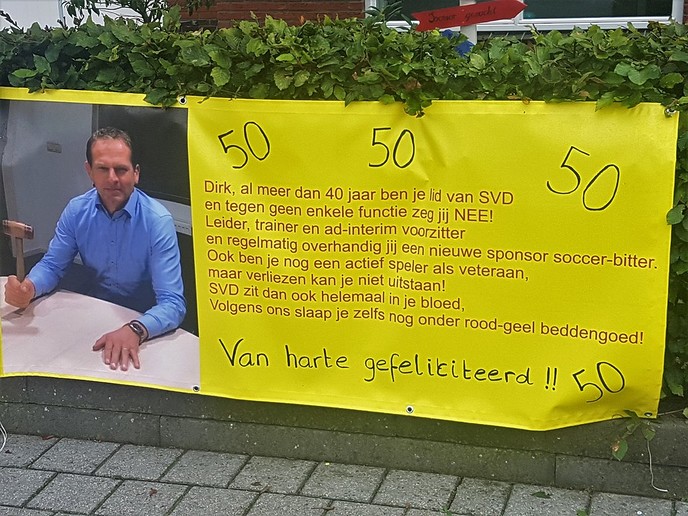 50 50 50
Dirk, al meer dan 40 jaar ben je lid van SVD
en tegen geen enkele functie zeg jij NEE!
Leider, trainer en ad-interim voorzitter
en regelmatig overhandig jij een nieuwe sponsor soccer-bitter.
Ook ben je nog een actief speler als veteraan,
maar verliezen kan je niet uitstaan!
SVD zit dan ook helemaal in je bloed,
Volgens ons slaap je zelfs nog onder rood-geel beddengoed!
Van harte gefeliciteerd !! 50